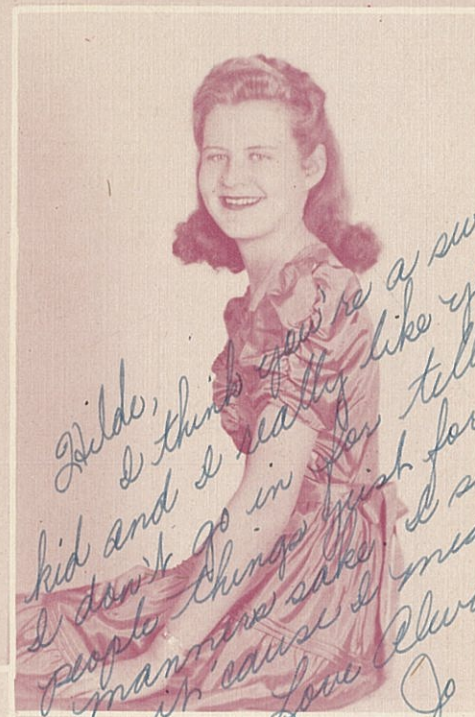 Hilde,
I think you're a sw
kid and I really like y
I don't go in for tell
people things just for
manners sake. I s
it 'cause I mea
Love Alwa
Jo